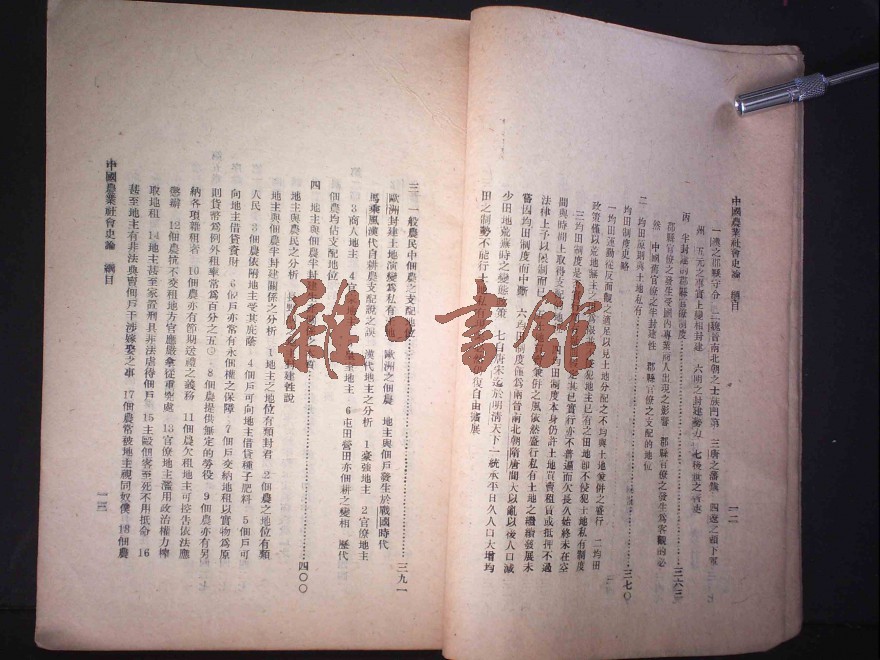 中國農業社會史論　綱目
一二
一漢之郡縣守令　二魏晉南北朝之士族門第　三唐之藩鎮　四遼之頭下軍
州　五元之專賞上變相封建　六明之封建勢力　七後世之胥吏
丙　半封建的郡縣官僚制度……三六三
郡縣官僚之發生受國內專業商人出現之影響　郡縣官僚之發生爲客觀的必
然　中國舊官僚之半封建性　郡縣官僚之支配的地位
二　均田原則與土地私有……三七〇
均田制度史略
一均田運動從反面觀之適足以見土地分配之不均與土地兼併之盛行　二均田
政策僅以荒地無主之
犯地主已有之田地即不侵犯土地私有制度
三均田制度是
其已實行亦不普遍而欠長久始終未在空
間與時間上取得支配
四均田制度本身仍許土地買賣租賃或抵押不過
法律上予以限制而已
兼併之風依然盛行私有土地之繼續發展未
嘗因均田制度而中斷　六均田制度僅爲兩晉南北朝隋唐間大亂以後人口減
少田地荒蕪時之變態
策　七自唐宋迄於明清天下一統承平日久人口大增均
田之制勢不能行土地私有
復自由發展
三　一般農民中佃農之支配地位……三九一
歐洲封建土地演變爲私有
歐洲之佃農　地主與佃戶發生於戰國時代
馬乘風漢代自耕農支配說之誤　漢代地主之分析　1豪強地主　2官僚地主
3商人地主　4官
地主　6屯田營田亦佃耕之變相　歷代
佃農均佔支配地位
四　地主與佃農半封建
……四〇〇
地主與農民之分析
封建性說
地主與佃農半封建關係之分析　1地主之地位有類封君　2佃農之地位有類
人民　3佃農依附地主受其庇蔭　4佃戶可向地主借貸種子肥料　5佃戶可
向地主借貸資財　6佃戶亦常有永佃權之保障　7佃戶交納地租以實物爲原
則貨幣爲例外租率常爲百分之五〇　8佃農提供無定的勞役　9佃農亦有另
納各項雜租者　10佃農亦有節期送禮之義務　11佃農欠租地主可控告依法應
懲辦　12佃農抗不交租地方官應嚴拿從重究處　13官僚地主濫用政治權力榨
取地租　14地主甚至家置刑具非法虐待佃戶　15主毆佃客至死不用抵命　16
甚至地主有非法典賣佃戶干涉嫁娶之事　17佃農常被地主視同奴僕　18佃農
中國農業社會史論　綱目
一三
雜·書館